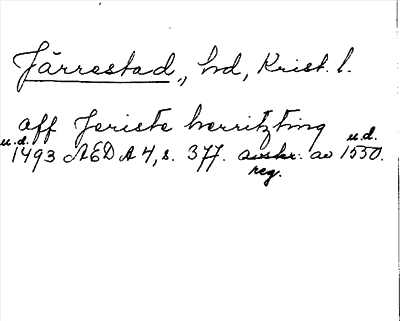 Järrestad, hd, Krist. l.
aff Jeriste herritzting
u.d. 1493 ÆDA 4, s. 377. avskr. av u.d. 1550.
reg.